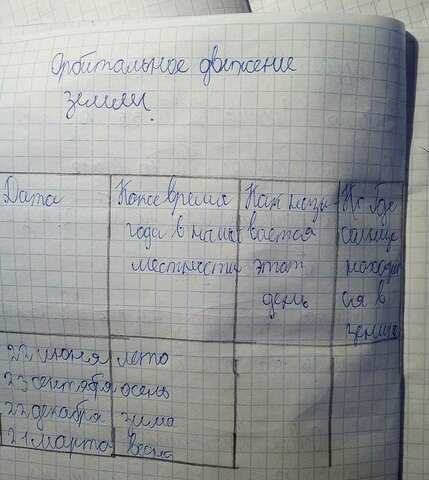 Орбитальное движение
земли.
Дата
Какое время
года в нашей
местности
Как назы
вается
этот
день
Где
солнце
находит
ся в
зените
22 июня лето
23 сентября осень
22 декабря зима
21 марта весна